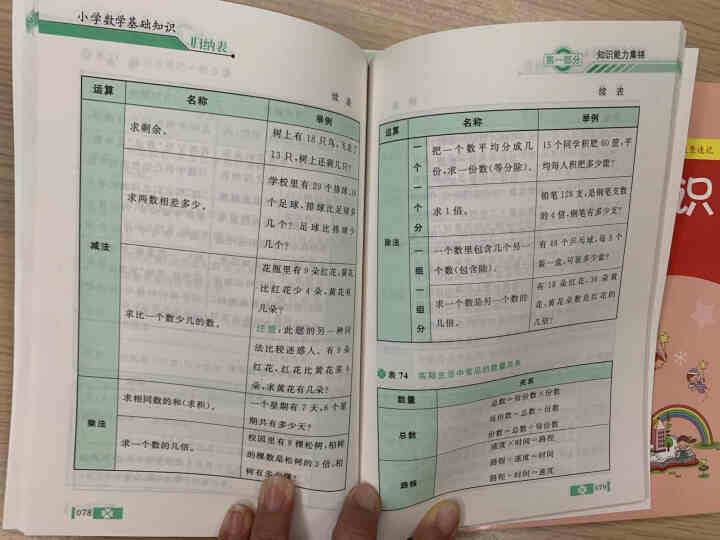 小学数学基础知识
归纳表
续 表
运算
名称
举例
减法
求剩余。
树上有18只鸟,飞走了
13只,树上还剩几只?
求两数相差多少。
学校里有29个排球,18
个足球,排球比足球多
几个?足球比排球少
几个?
求比一个数少几的数。
花瓶里有9朵红花,黄花
比红花少4朵,黄花有
几朵?
注意:此题的另一种问
法比较迷惑人。有9朵
红花,红花比黄花多4
朵,求黄花有几朵?
乘法
求相同数的和(求积)。
一个星期有7天,6个星
期共有多少天?
求一个数的几倍。
校园里有8棵松树,柏树
的棵数是松树的3倍,柏
树有多少棵?
078
第一部分
知识能力集锦
续 表
运算
名称
举例
除法
一个一个分
把一个数平均分成几
份,求一份数(等分除)。
15个同学积肥60筐,平
均每人积肥多少筐?
求1倍。
铅笔128支,是钢笔支数
的4倍,钢笔有多少支?
一组一组分
一个数里包含几个另一
个数(包含除)。
有48个乒乓球,每8个
装一盒,可装多少盒?
求一个数是另一个数的
几倍。
有18朵红花,36朵黄
花,黄花朵数是红花的
几倍?
表74
实际生活中常见的数量关系
数量
关系
总数
总数=每份数×份数
每份数=总数÷份数
份数=总数÷每份数
路程
速度×时间=路程
路程÷速度=时间
路程÷时间=速度
079
识